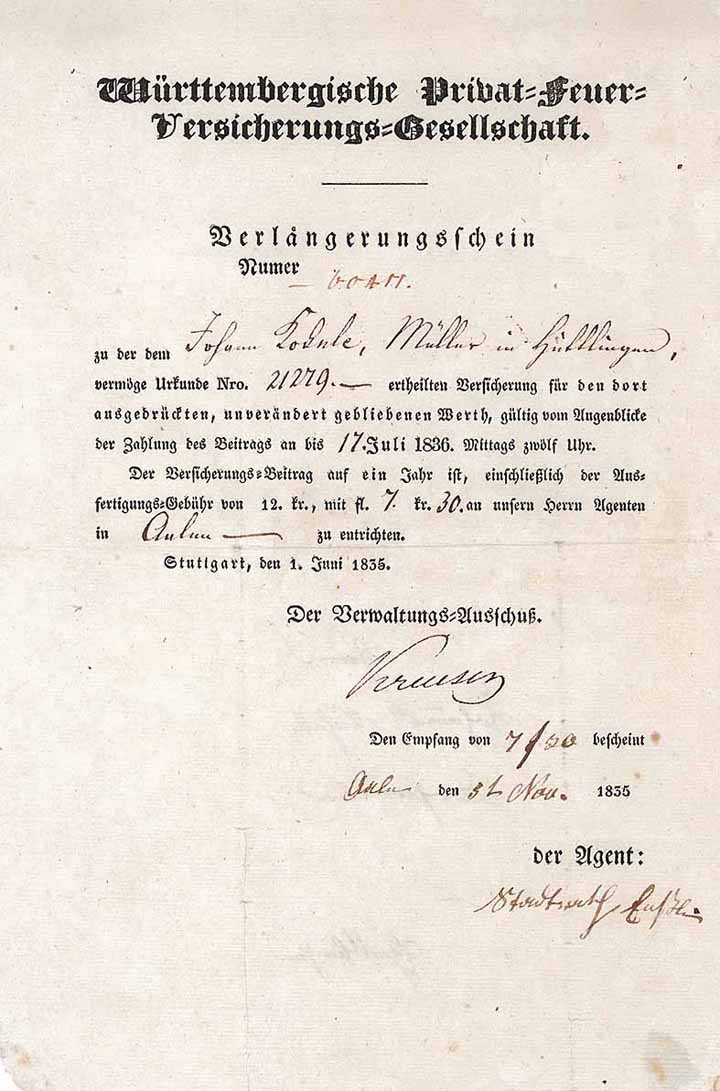 Württembergische Privat-Feuer-
Versicherungs-Gesellschaft.
Verlängerungsschein
Numer
zu der dem Johann Müller in Hüttlingen,
vermöge Urkunde Nro. 21279. — ertheilten Versicherung für den dort
ausgedrückten, unverändert gebliebenen Werth, gültig vom Augenblicke
der Zahlung des Beitrags an bis 17. Juli 1836. Mittags zwölf Uhr.
Der Versicherungs-Beitrag auf ein Jahr ist, einschließlich der Aus-
fertigungs-Gebühr von 12. kr., mit fl. 7. kr. 30. an unsern Herrn Agenten
in Aalen — zu entrichten.
Stuttgart, den 1. Juni 1835.
Der Verwaltungs-Ausschuß.
Den Empfang von 7 f 30 bescheint
Aalen den Nov. 1835
der Agent:
Stadtrath